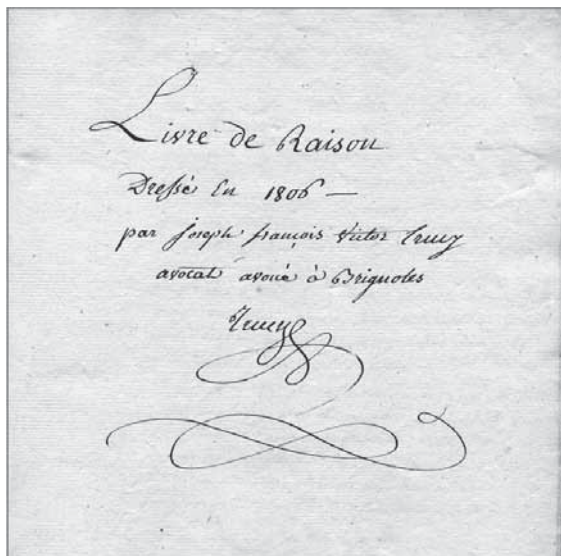 Livre de Raison
Dressé En 1806 —
par joseph françois victor Trucy
avocat avoué à Brignoles
Trucy